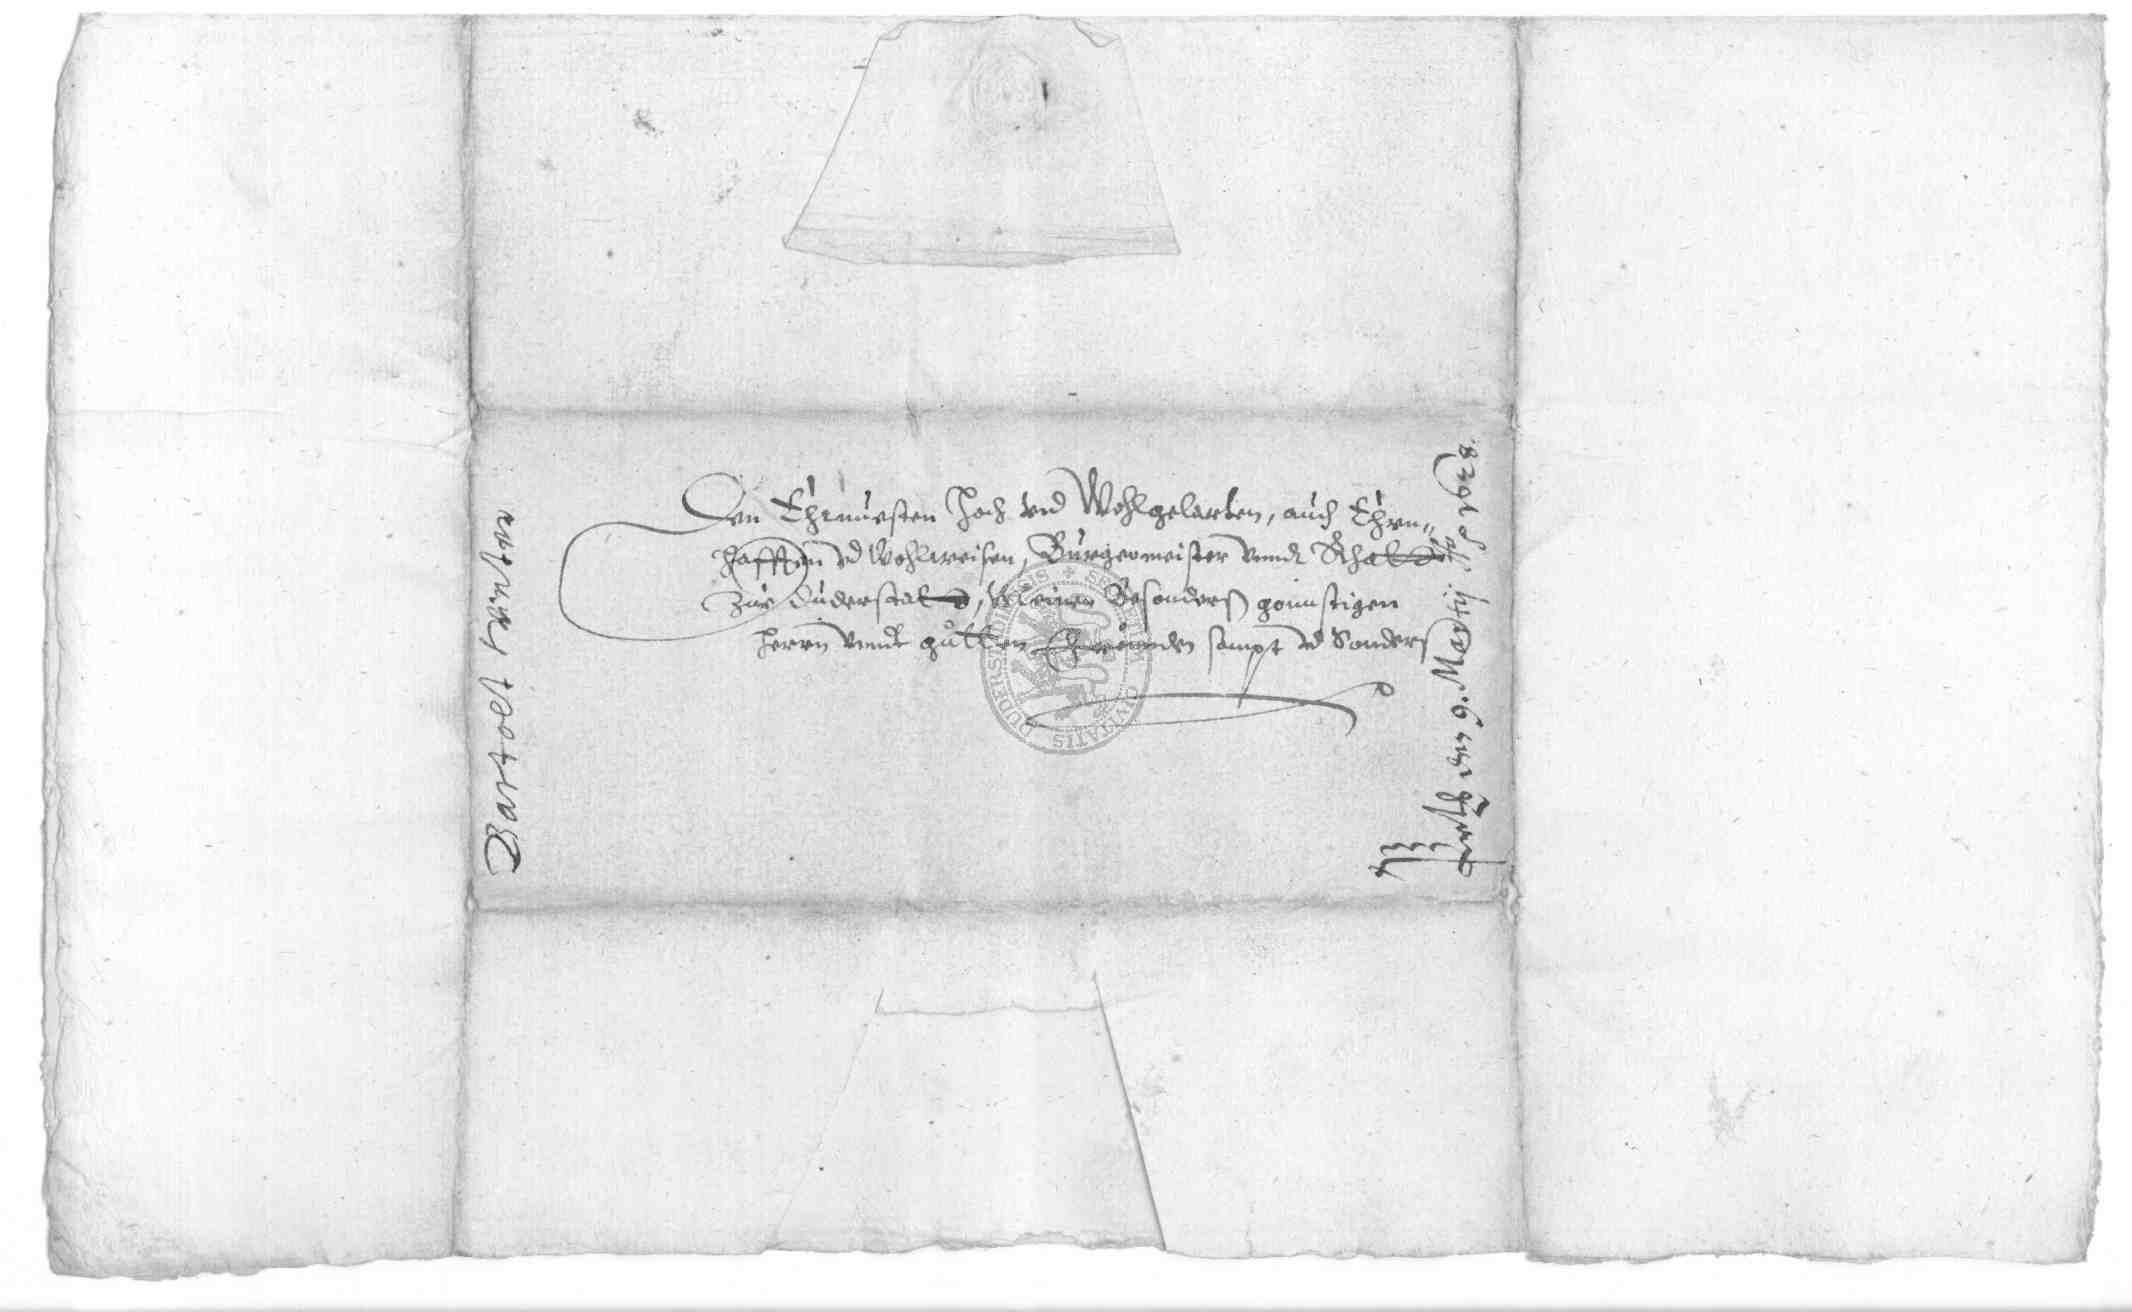 Den Ehrnuesten Hoch vnd Wohlgelarten, auch Ehrn-
hafften vnd Wohlweisen, Burgermeister vnndt Rhat
zue Duderstat, Meinen Besonders gounstigen
Herrn vnndt gutten Freunden sampt vnd Sonders
9. Martij 1628.
SIGILLUM CIVITATIS DUDERSTADIENSIS